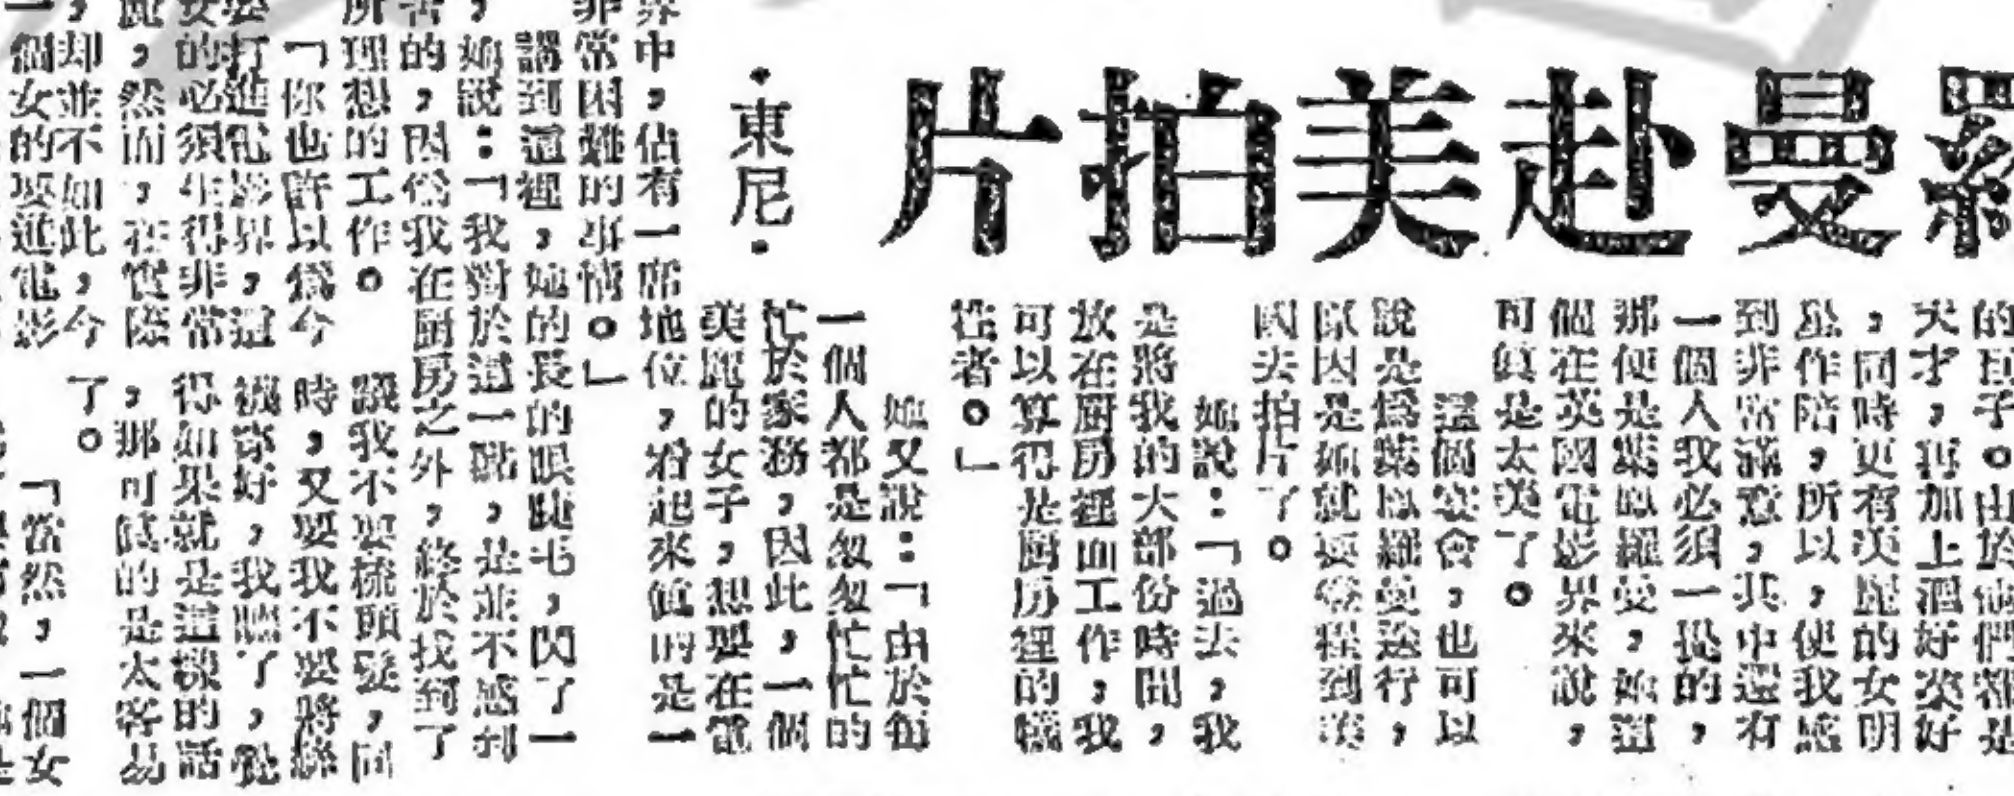 羅曼赴美拍片
·東尼·
的日子。由於他們都是
天才,再加上溫好萊好
,同時更有美麗的女明
星作陪,所以,使我感
到非常滿意,其中還有
一個人我必須一提的,
那便是葉以羅曼,她這
個在英國電影界來說,
可真是太美了。
這個宴會,也可以
說是爲葉以羅曼送行,
原因是她就要啓程到美
國去拍片了。
她說:「過去,我
是將我的大部份時間,
放在厨房裡面工作,我
可以算得是厨房裡的犧
牲者。」
她又說:「由於每
一個人都是忽忽忙忙的
忙於家務,因此,一個
美麗的女子,想要在電
界中,佔有一席地位,看起來值的是一
非常困難的事情。」
講到這裡,她的長的眼睫毛,閃了一
,她說:「我對於這一點,是並不感到
的,因爲我在厨房之外,終於找到了
所理想的工作。
「你也許以爲今
要打進電影界,這
女的必須生得非常
麗,然而,在實際
,却並不如此,今
一個女的要進電影
讓我不要梳頭髮,同
時,又要我不要將絲
襪穿好,我聽了,覺
得如果就是這樣的話
,那可眞的是太客易
了。
「當然,一個女